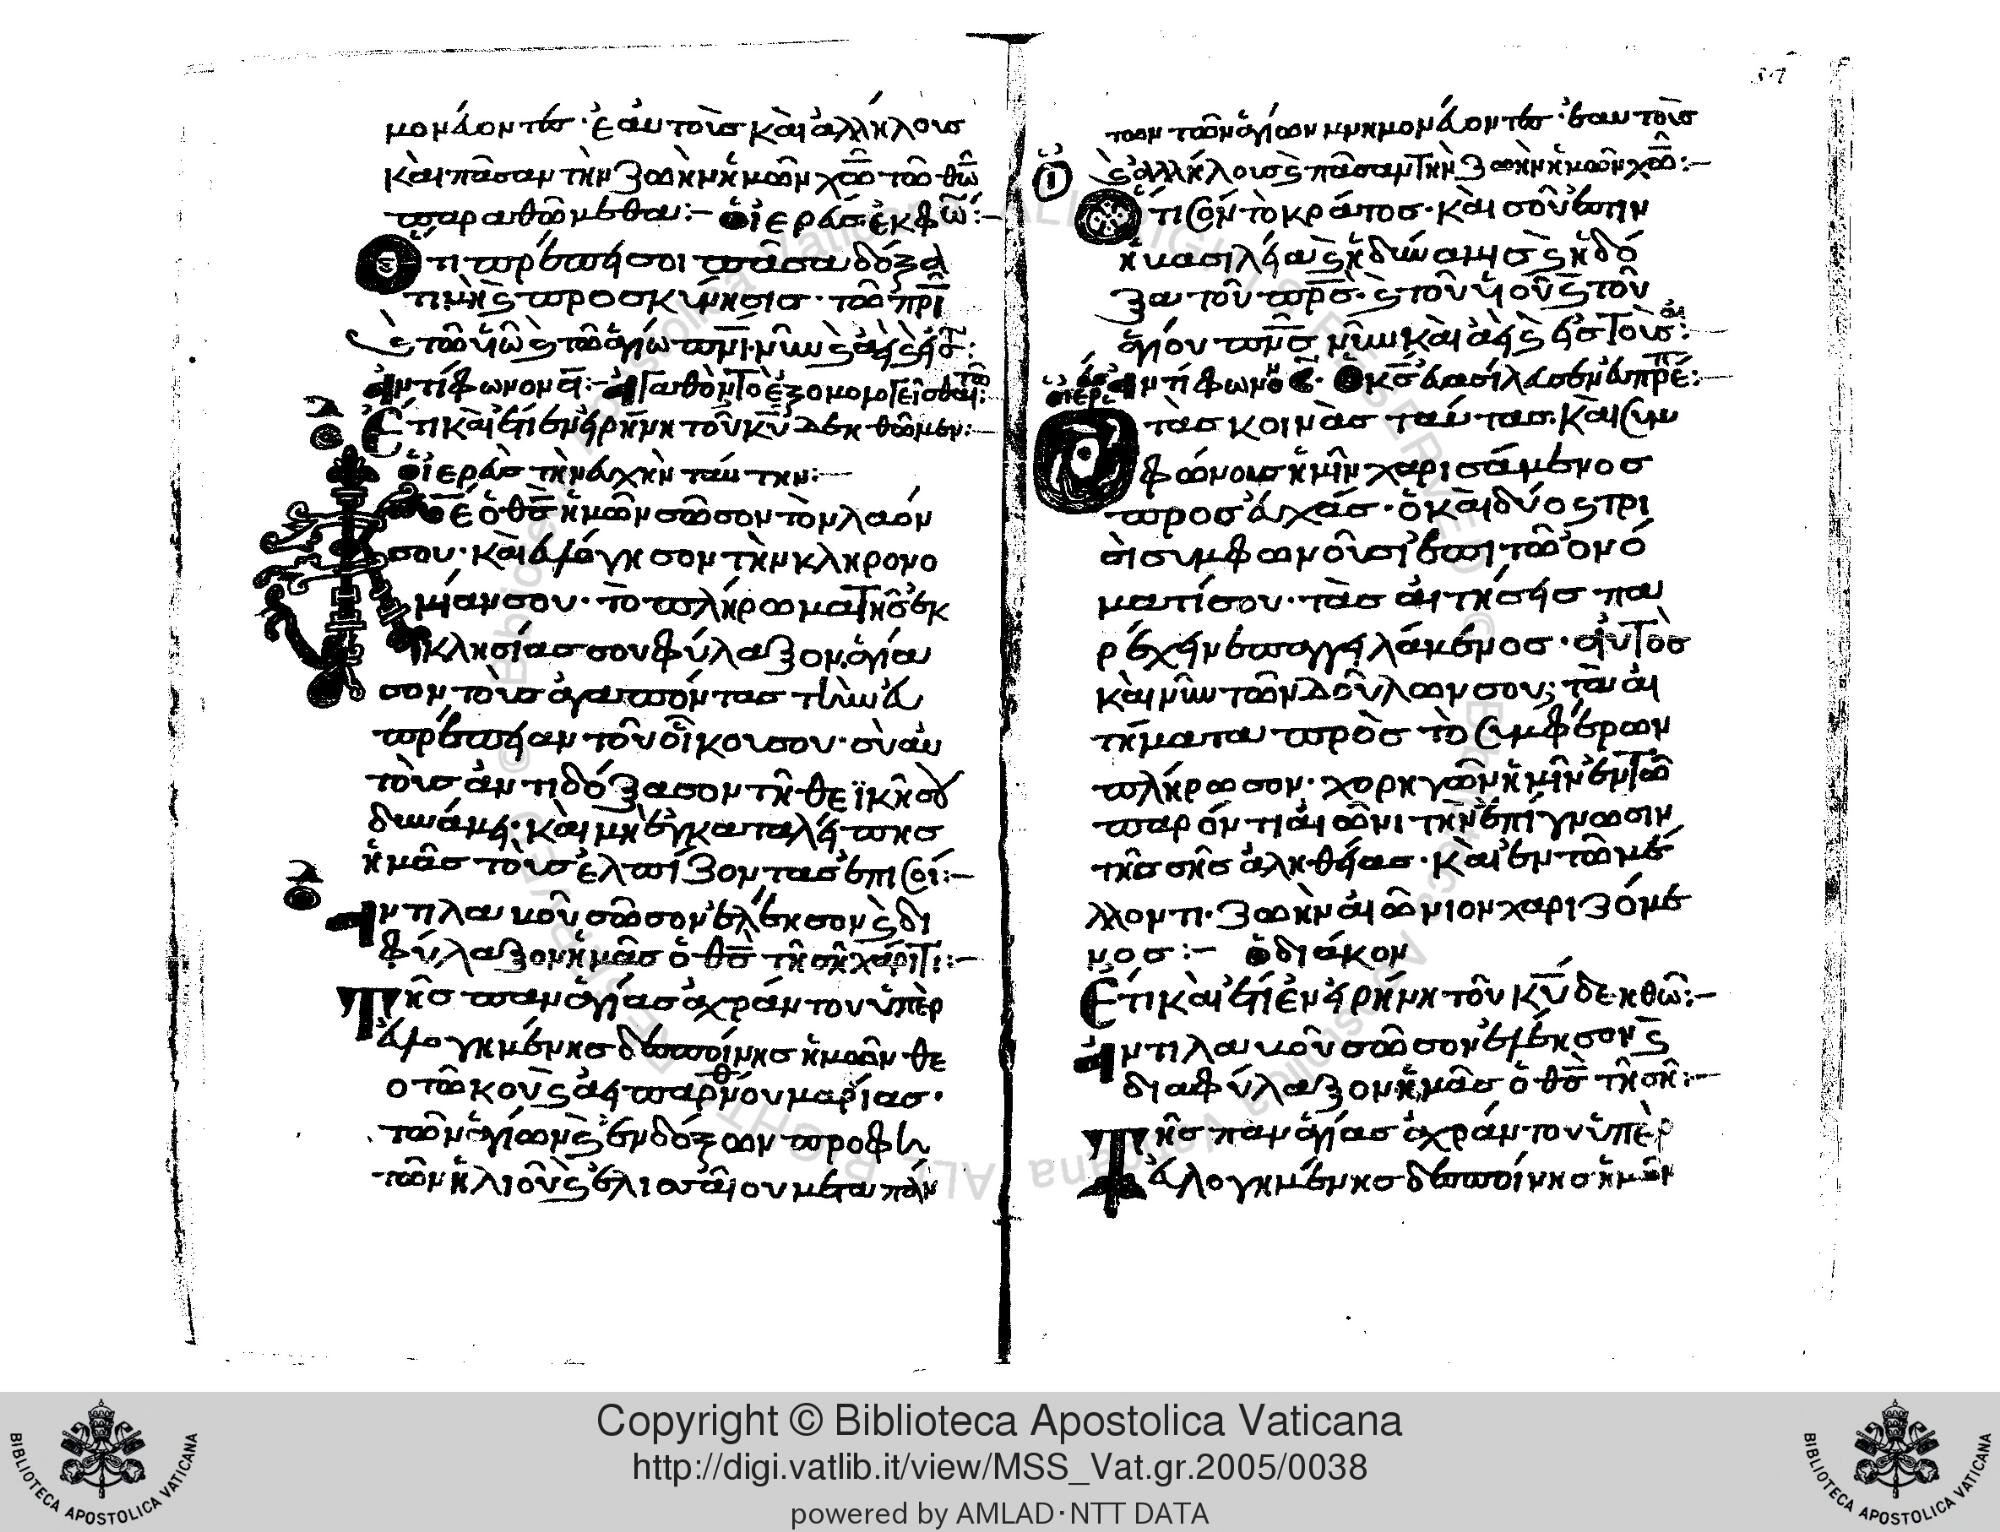 μονεύοντες · ἑαυτοὺς καὶ ἀλλήλους
καὶ πᾶσαν τὴν ζωὴν ἡμῶν χω τῶ θω
παραθώμεθα :– ὁ ἱερεὺς ἐκφω :–
Ὅτι πρέπει σοι πᾶσα δόξα
τιμὴ ϛ προσκύνησις · τῶ πρι
ϛ τῶ υιω ϛ τῶ ἁγίω πνι · νῦν ϛ ἀεὶ ϛ εἰς τ :
ἀντίφωνον α :– ἀγαθὸν τὸ ἐξομολογεῖσθαι τῶ :
Ἔτι καὶ ἔτι ἐν εἰρήνη τοῦ κυ δεηθῶμεν :–
ὁ ἱερεὺς τὴν εὐχὴν ταύτην :–
κε ὁ θς ἡμῶν σῶσον τὸν λαόν
σου · καὶ εὐλόγησον τὴν κληρονο
μίαν σου · τὸ πλήρωμα τῆς ἐκ
κλησίας σου φύλαξον ἁγία
σον τοὺς ἀγαπόντας τὴν εὐ
πρέπειαν τοῦ οἴκου σου · σὺ αὐ
τοὺς ἀντιδόξασον τῆ θεϊκῆ σου
δυνάμει · καὶ μὴ ἐγκαταλείπης
ἡμᾶς τοὺς ἐλπίζοντας ἐπὶ σοί :–
Ἀντιλαβοῦ σῶσον ἐλέησον ϛ δι
φύλαξον ἡμᾶς ὁ θς τῆ σῆ χάριτι :–
Τῆς παναγίας ἀχράντου ὑπὲρ
εὐλογημένης δεσποίνης ἡμῶν θε
οτῶκου ϛ ἀειπαρθένου μαρίας ·
τῶν ἁγίων ϛ ἐνδόξων προφη
τῶν ἠλιοῦ ϛ ἐλισσαίου μετὰ πάν
των τῶν ἁγίων μνημονεύοντες · ἑαυτοὺς
ϛ ἀλλήλους ϛ πᾶσαν τὴν ζωὴν ἡμῶν χω :–
Ὅτι σὸν τὸ κράτος · καὶ σοῦ ἐστιν
ἡ βασιλεία ϛ ἡ δύναμις ϛ ἡ δό
ξα τοῦ πρς · ϛ τοῦ υἱοῦ ϛ τοῦ
ἁγίου πνς νῦν καὶ ἀεὶ ϛ εἰς τοὺς αἰ :
ἀντίφωνον β · Ὁ κς ἐβασίλευσεν εὐπρέ :–
ὁ ἱερ
Ὁ τὰς κοινὰς ταύτας · καὶ συμ
φώνους ἡμῖν χαρισάμενος
προσευχάς · ὁ καὶ δύο ϛ τρι
σὶ συμφωνοῦσι ἐπὶ τῶ ὀνό
ματί σου · τὰς αἰτήσεις πα
ρέχειν ἐπαγγειλάμενος · αὐτὸς
καὶ νῦν τῶν δούλων σου ; τὰ αἰ
τήματα πρὸς τὸ συμφέρων
πλήρωσον · χορηγῶν ἡμῖν ἐν τῶ
παρόντι αἰῶνι τὴν ἐπίγνωσιν
τῆς σῆς ἀληθείας · καὶ ἐν τῶ μέ
λλοντι · ζωὴν αἰῶνιον χαριζόμε
νος :– ὁ διάκον
Ἔτι καὶ ἔτι ἐν εἰρήνη τοῦ κυ δεηθῶ :–
Ἀντιλαβοῦ σῶσον ἐλέησον ϛ
διαφύλαξον ἡμᾶς ὁ θς τῆ σῆ :–
Τῆς παναγίας ἀχράντου ὑπὲρ
εὐλογημένης δεσποίνης ἡμῶν
Copyright © Biblioteca Apostolica Vaticana
http://digi.vatlib.it/view/MSS_Vat.gr.2005/0038
powered by AMLAD·NTT DATA
BIBLIOTECA APOSTOLICA VATICANA
BIBLIOTECA APOSTOLICA VATICANA